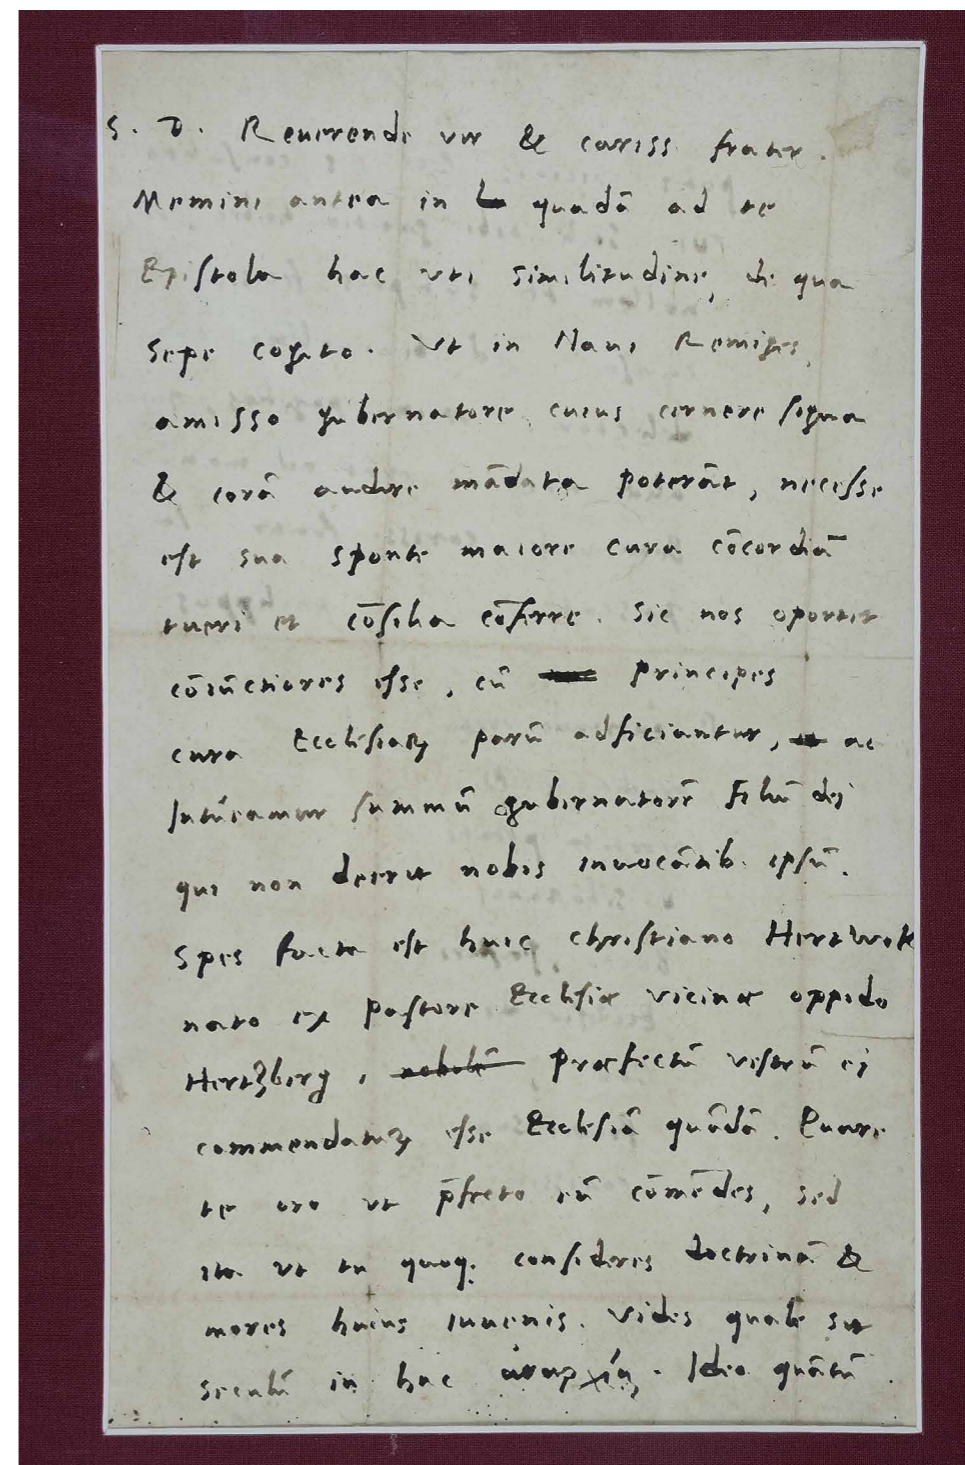 S. D. Reuerende vir & cariss. frater.
Memini antea in quadā ad te
Epistola hac vti similitudine, de qua
sepe cogito. Vt in Naui Remiges,
amisso gubernatore, cuius cernere signa
& corā audire mādata poterāt, necesse
est sua sponte maiore cura cōcordiā
tueri et cōsilia cōferre. Sic nos oportet
cōiūctiores esse, cū principes
cura Ecclesiaꝝ parū adficiantur, ac
Intueamur summū gubernatorē Filiū dei
qui non deerit nobis inuocātib. ipsū.
Spes facta est huic Christiano
nato ex pastore Ecclesiæ vicinæ oppido
Hertzberg, præfectū vestrū ei
esse Ecclesiā quādā. Quare
te oro vt eū cōmēdes, sed
ita vt tu quoq; consideres doctrinā &
mores huius iuuenis. Vides quale sit
seculū in hac ἀναρχίᾳ. Ideo quātū